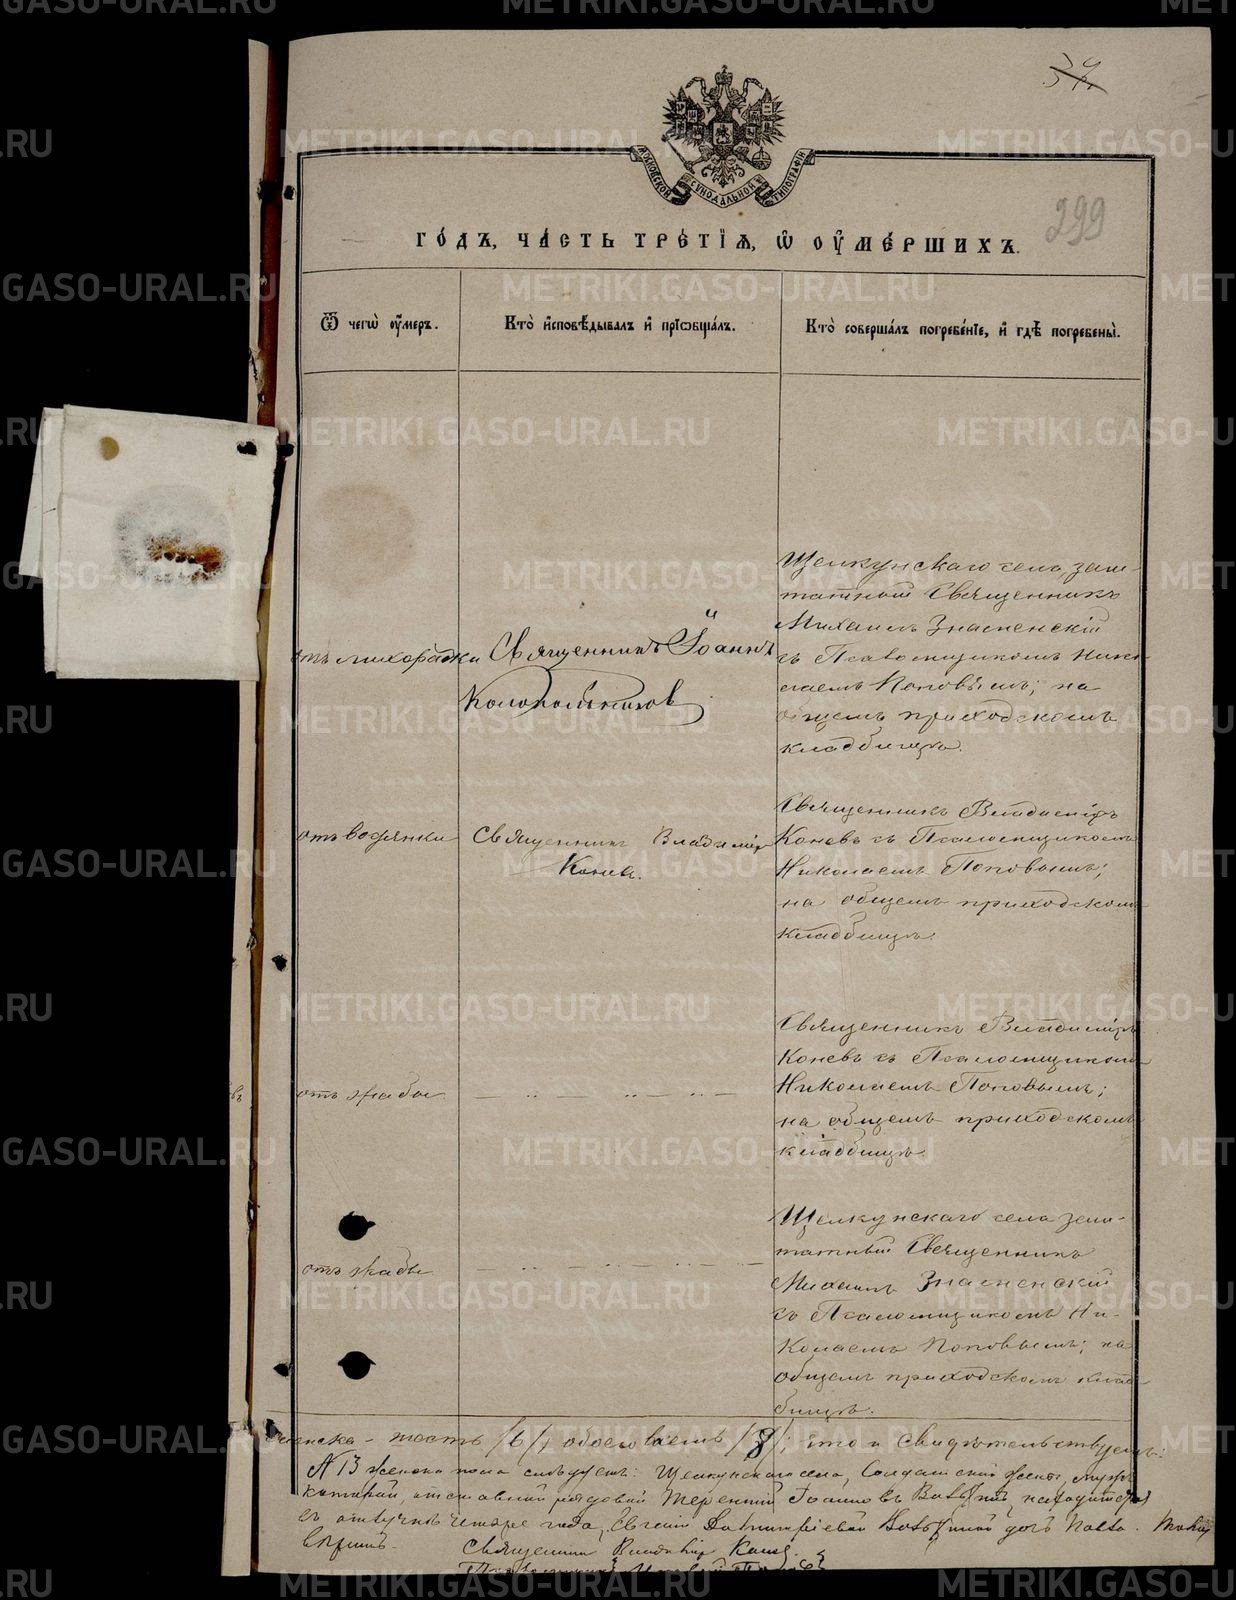 37.
МОСКОВСКОЙ СѴНОДАЛЬНОЙ ТИПОГРАФІИ
299
ГО́ДЪ, ЧА́СТЬ ТРЕ́ТІѦ, Ѡ҆ ОУ҆МЕ́РШИХЪ.
Ѿ чегѡ̀ оу҆́меръ.
Кто̀ и҆сповѣ́дывалъ и҆ прїѡбща́лъ.
Кто̀ соверша́лъ погребе́нїе, и҆ гдѣ̀ погребены̀.
отъ лихорадки
Священникъ Іоаннъ
Колокольниковъ
Щелкунскаго села, заш-
татный Священникъ
Михаилъ Знаменскій
съ Псаломщикомъ Нико-
лаемъ Поповымъ; на
общемъ приходскомъ
кладбищѣ.
отъ водянки
Священник Владиміръ
Конев.
Священникъ Владиміръ
Коневъ съ Псаломщикомъ
Николаемъ Поповымъ;
на общемъ приходскомъ
кладбищѣ.
отъ жабы
— „ — „ — „ —
Священникъ Владиміръ
Коневъ съ Псаломщикомъ
Николаемъ Поповымъ;
на общемъ приходскомъ
кладбищѣ.
отъ жабы
— „ — „ — „ —
Щелкунскаго села заш-
татный Священникъ
Михаилъ Знаменскій
съ Псаломщикомъ Ни-
колаемъ Поповымъ; на
общемъ приходскомъ клад-
бищѣ.
женска - шесть /6/, обоего восемь /8/; что и свидѣтельствуемъ:
№ 13 женска пола слѣдуетъ: Щелкунскаго села, Солдатской жены, мужъ
которой, отставной рядовой Терентій Іоанновъ находится
въ отлучкѣ четыре года, Евгеніи Димитріевой дочь
вѣримъ.
Священник Владимір Конев.
Псаломщикъ Николай Поповъ
METRIKI.GASO-URAL.RU